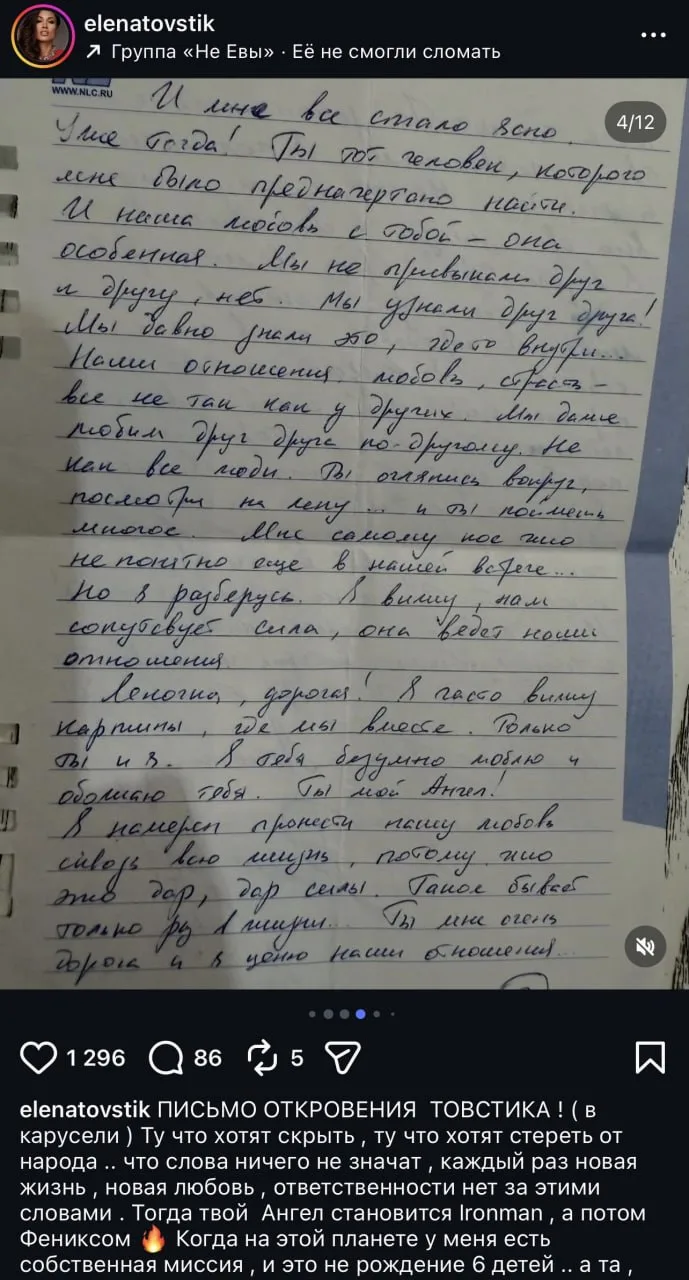 elenatovstik
Группа «Не Евы» · Её не смогли сломать
WWW.NLC.RU
4/12
И мне все стало ясно.
Уже тогда! Ты тот человек, которого
мне было предначертано найти.
И наша любовь с тобой – она
особенная. Мы не привыкали друг
к другу, нет. Мы узнали друг друга!
Мы давно знали это, где то внутри...
Наши отношения, любовь, страсть –
все не так как у других. Мы даже
любим друг друга по-другому. Не
как все люди. Ты оглянись вокруг,
посмотри на ... и ты поймешь
многое. Мне самому кое что
не понятно еще в нашей встрече...
Но я разберусь. Я вижу, нам
сопутсвует сила, она ведет наши
отношения.
Леночка, дорогая! Я часто вижу
картины, где мы вместе. Только
ты и я. Я тебя безумно люблю и
обожаю тебя. Ты мой Ангел!
Я намерен пронести нашу любовь
сквозь всю жизнь, потому что
это дар, дар силы. Такое бывает
только раз в жизни. Ты мне очень
дорога и я ценю наши отношения...
1 296 86 5
elenatovstik ПИСЬМО ОТКРОВЕНИЯ ТОВСТИКА ! ( в
карусели ) Ту что хотят скрыть , ту что хотят стереть от
народа .. что слова ничего не значат , каждый раз новая
жизнь , новая любовь , ответственности нет за этими
словами . Тогда твой Ангел становится Ironman , а потом
Фениксом 🔥 Когда на этой планете у меня есть
собственная миссия , и это не рождение 6 детей .. а та ,